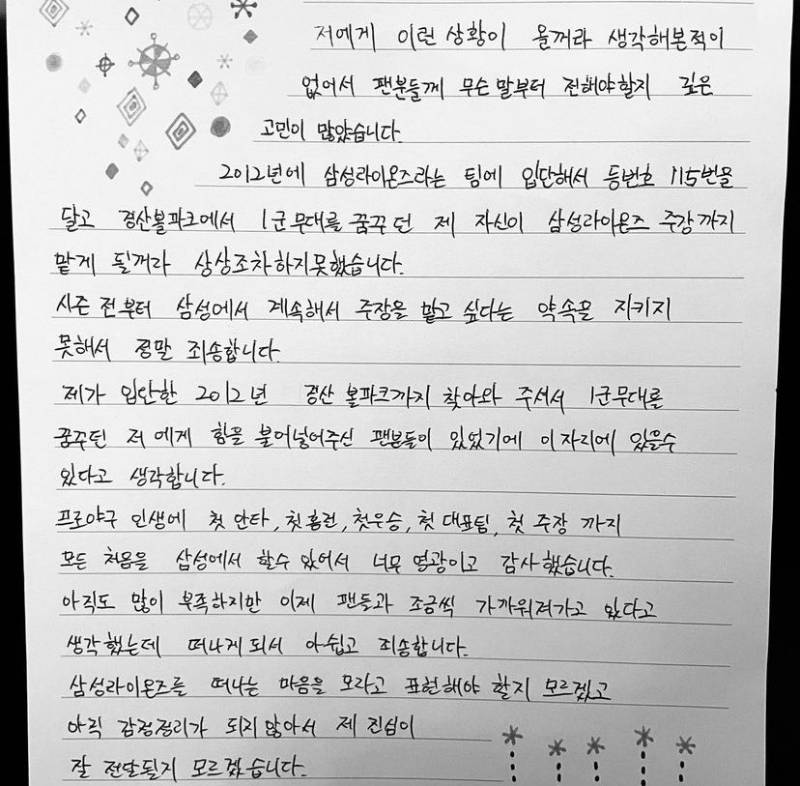 저에게 이런 상황이 올꺼라 생각해본적이
없어서 팬분들께 무슨 말부터 전해야할지 깊은
고민이 많았습니다.
2012년에 삼성라이온즈라는 팀에 입단해서 등번호 115번을
달고 경산볼파크에서 1군무대를 꿈꾸던 제 자신이 삼성라이온즈 주장까지
맡게 될꺼라 상상조차하지못했습니다.
시즌 전부터 삼성에서 계속해서 주장을 맡고 싶다는 약속을 지키지
못해서 정말 죄송합니다.
제가 입단한 2012년 경산 볼파크까지 찾아와 주셔서 1군무대를
꿈꾸던 저에게 힘을 불어넣어주신 팬분들이 있었기에 이 자리에 있을수
있다고 생각합니다.
프로야구 인생에 첫 안타, 첫홈런, 첫우승, 첫 대표팀, 첫 주장 까지
모든 처음을 삼성에서 할수 있어서 너무 영광이고 감사했습니다.
아직도 많이 부족하지만 이제 팬들과 조금씩 가까워져가고 있다고
생각했는데 떠나게되서 아쉽고 죄송합니다.
삼성라이온즈를 떠나는 마음을 모라고 표현해야 할지 모르겠고
아직 감정정리가 되지않아서 제 진심이
잘 전달될지 모르겠습니다.